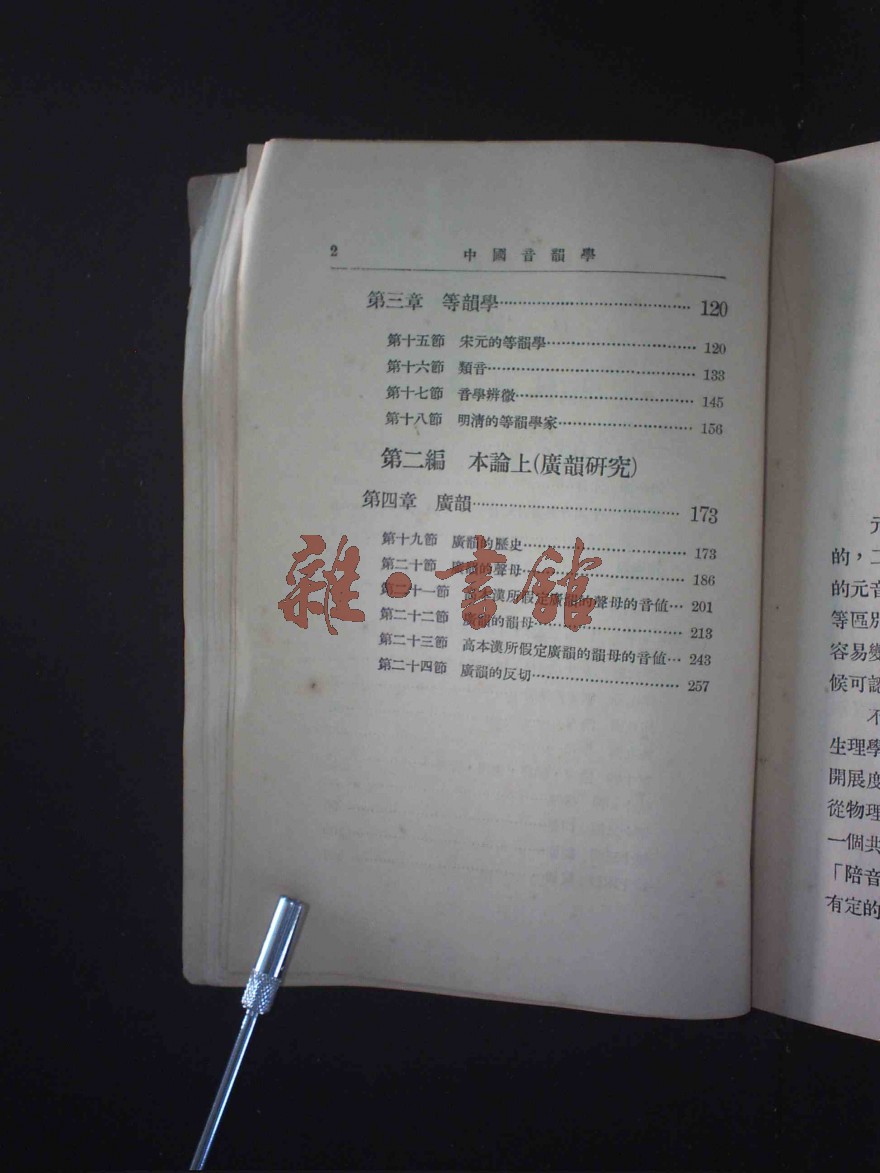 2 中國音韻學
第三章 等韻學…………………………………… 120
第十五節 宋元的等韻學…………………………… 120
第十六節 類音……………………………………… 133
第十七節 音學辨微………………………………… 145
第十八節 明淸的等韻學家………………………… 156
第二編 本論上(廣韻研究)
第四章 廣韻……………………………………… 173
第十九節 廣韻的歷史……………………………… 173
第二十節 廣韻的聲母……………………………… 186
第二十一節 高本漢所假定廣韻的聲母的音値… 201
第二十二節 廣韻的韻母…………………………… 213
第二十三節 高本漢所假定廣韻的韻母的音値… 243
第二十四節 廣韻的反切…………………………… 257
雜·書館
元
的，二
的元音
等區別
容易變
候可認
不
生理學
開展度
從物理
一個共
「陪音
有定的